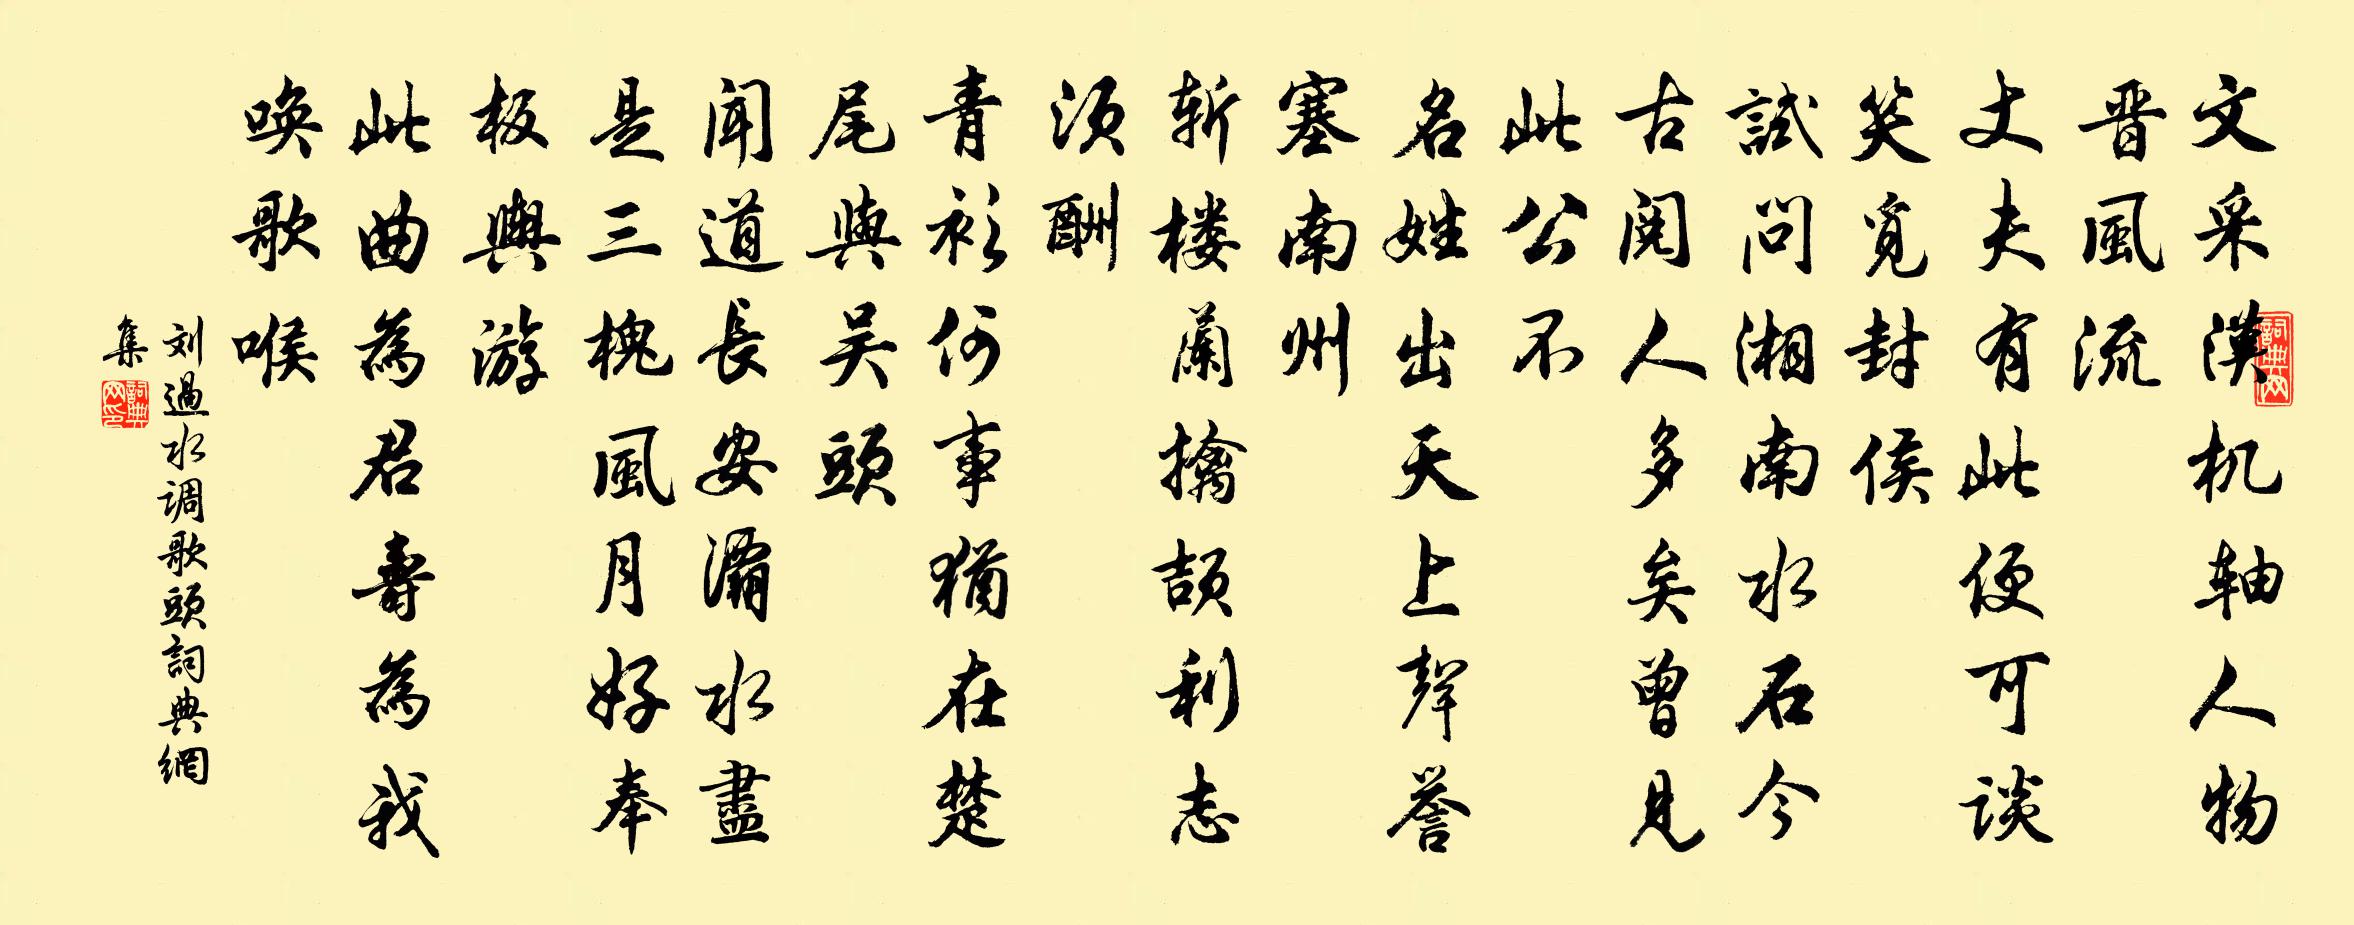 文采漢机轴人物
晋風流
丈夫有此便可談
笑覓封侯
試問湘南水石今
古閲人多矣曾見
此公不
名姓出天上聲誉
塞南州
斬楼蘭擒頡利志
須酬
青衫何事猶在楚
尾與吴頭
闻道長安灞水盡
是三槐風月好奉
板輿游
此曲為君壽為我
唤歌喉
刘過水调歌頭詞典網
集
詞典网
詞典网印